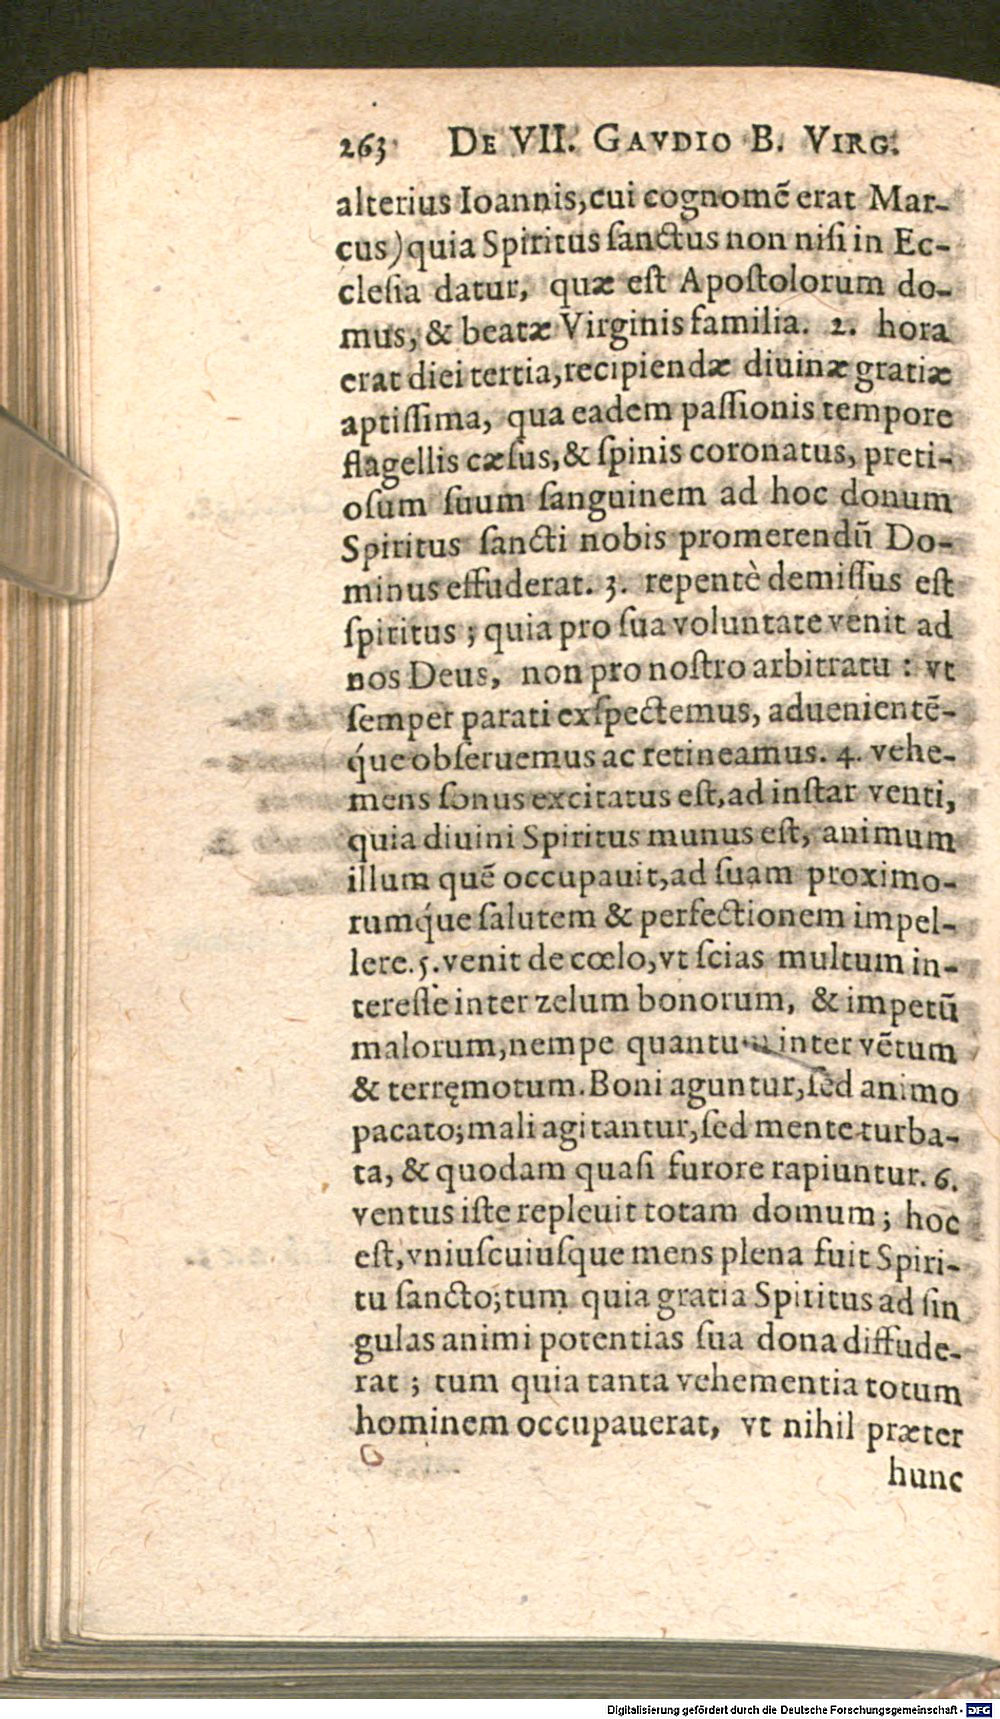 263 DE VII. GAVDIO B. VIRG.
alterius Ioannis, cui cognomẽ erat Mar-
cus) quia Spiritus ſanctus non niſi in Ec-
cleſia datur, quæ eſt Apoſtolorum do-
mus, & beatæ Virginis familia. 2. hora
erat diei tertia, recipiendæ diuinæ gratiæ
aptiſſima, qua eadem paſſionis tempore
flagellis cæſus, & ſpinis coronatus, preti-
oſum ſuum ſanguinem ad hoc donum
Spiritus ſancti nobis promerendũ Do-
minus effuderat. 3. repentè demiſſus eſt
ſpiritus ; quia pro ſua voluntate venit ad
nos Deus, non pro noſtro arbitratu : vt
ſemper parati exſpectemus, aduenientẽ-
q́ue obſeruemus ac retineamus. 4. vehe-
mens ſonus excitatus eſt, ad inſtar venti,
quia diuini Spiritus munus eſt, animum
illum quẽ occupauit, ad ſuam proximo-
rumq́ue ſalutem & perfectionem impel-
lere. 5. venit de cœlo, vt ſcias multum in-
tereſſe inter zelum bonorum, & impetũ
malorum, nempe quantum inter vẽtum
& terręmotum. Boni aguntur, ſed animo
pacato; mali agitantur, ſed mente turba-
ta, & quodam quaſi furore rapiuntur. 6.
ventus iſte repleuit totam domum ; hoc
eſt, vniuſcuiuſque mens plena fuit Spiri-
tu ſancto; tum quia gratia Spiritus ad ſin
gulas animi potentias ſua dona diffude-
rat ; tum quia tanta vehementia totum
hominem occupauerat, vt nihil præter
hunc
Digitalisierung gefördert durch die Deutsche Forschungsgemeinschaft - DFG